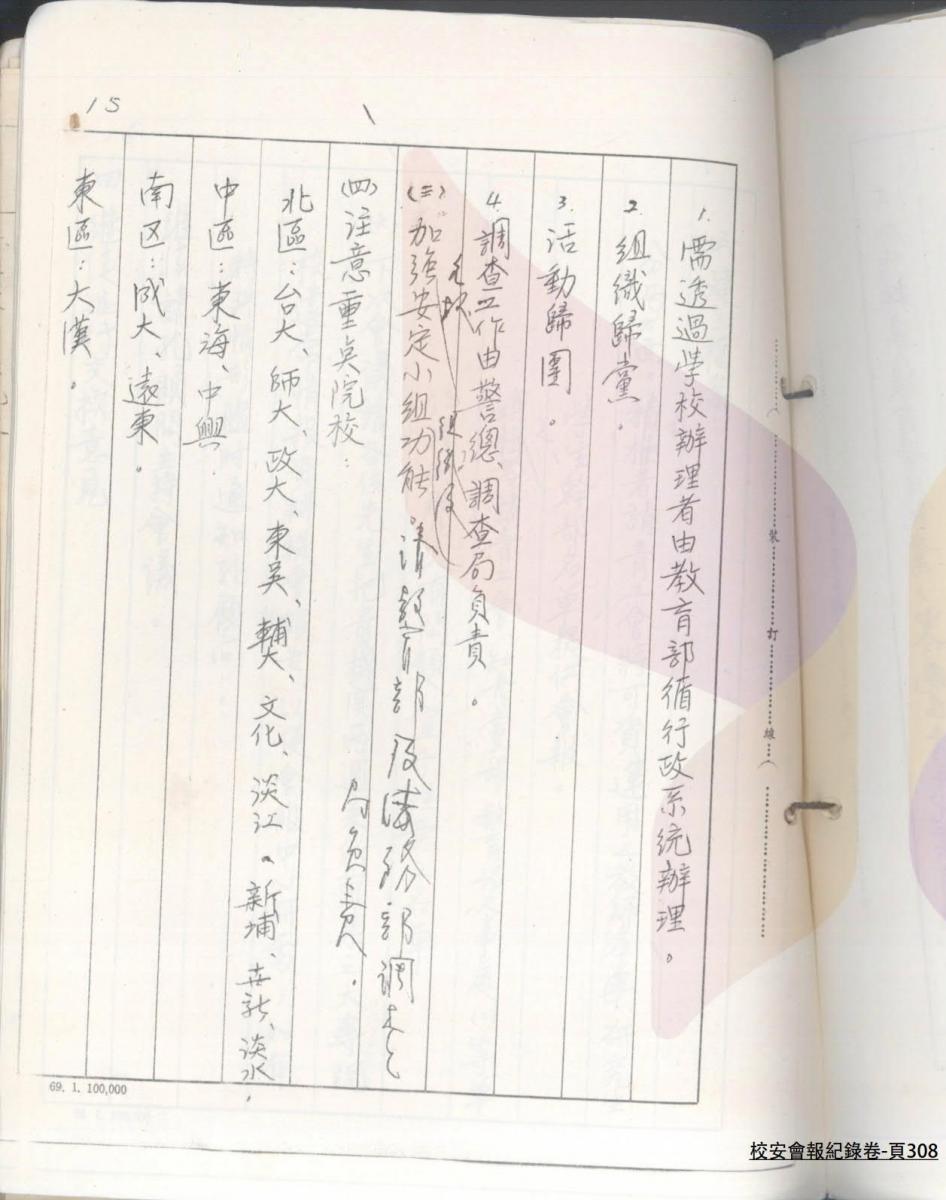 15
1. 需透過學校辦理者由教育部循行政系統辦理。
2. 組織歸黨。
3. 活動歸團。
4. 調查工作由警總、調查局負責。
(三)加強安定小組功能。請教育部及法務部調查
局負責。
(四)注意重點院校：
北區：台大、師大、政大、東吳、輔大、文化、淡江。新埔、世新、淡水.
中區：東海、中興.
南区：成大、遠東。
東區：大漢。
裝 訂 線
69. 1. 100,000
校安會報紀錄卷-頁308